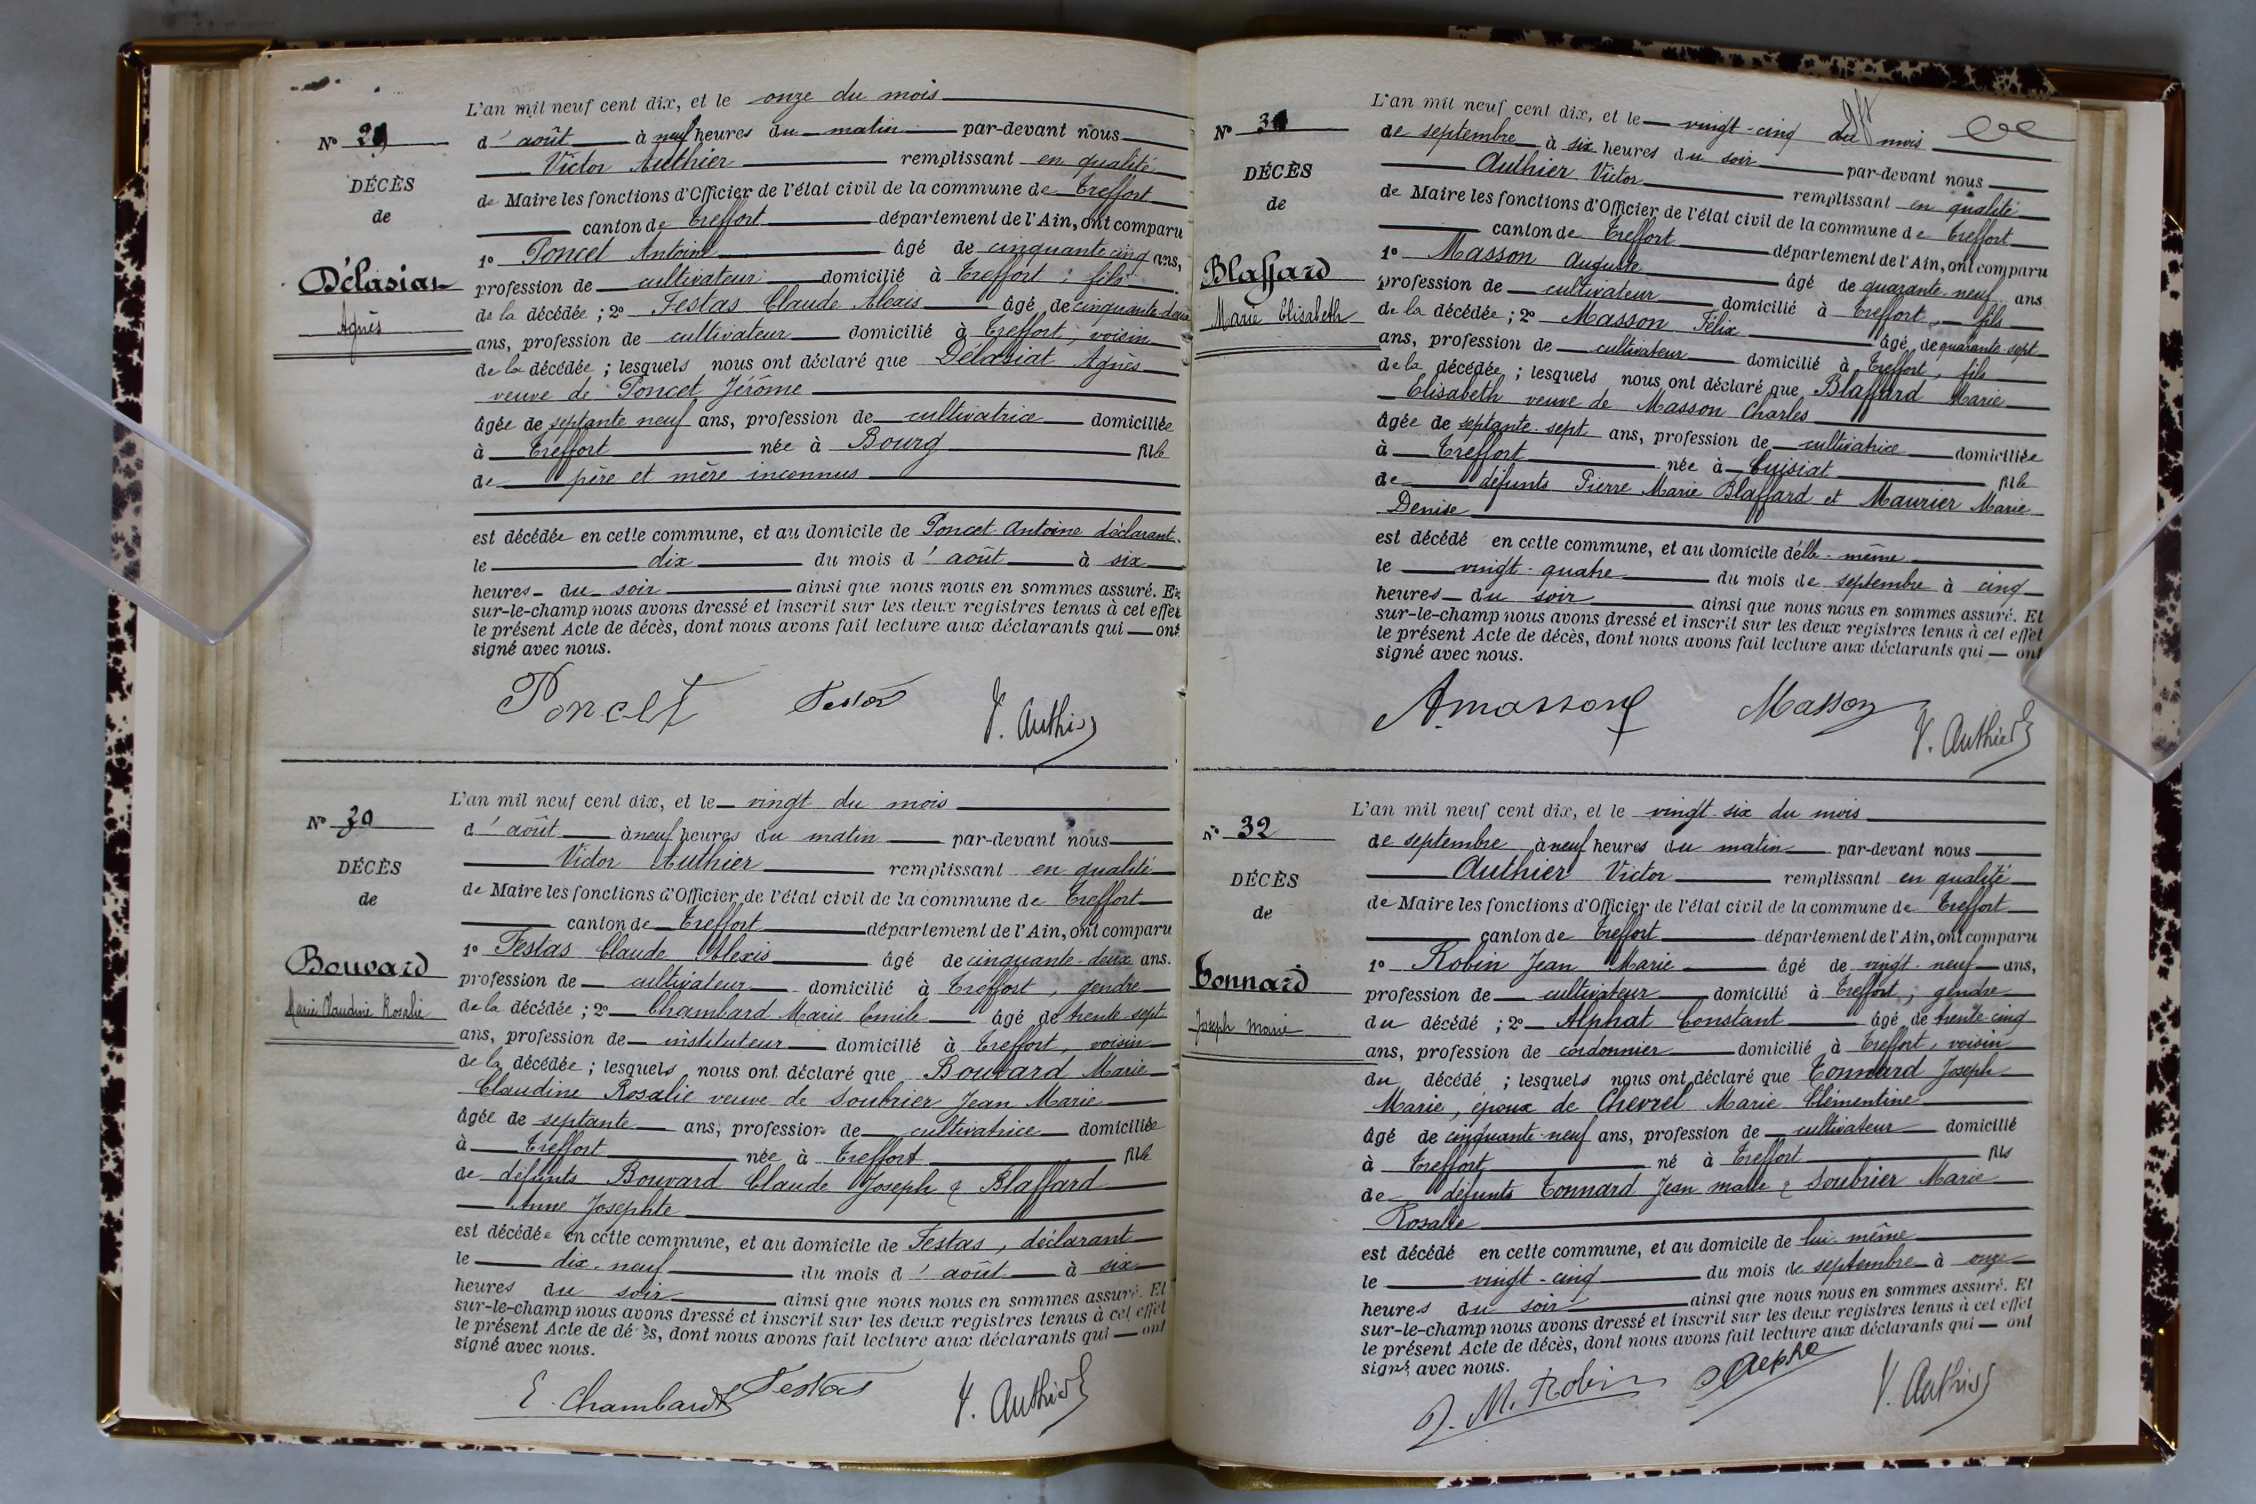 L'an mil neuf cent dix, et le onze du mois
N° 29
d'août à neuf heures du matin par-devant nous
Victor Authier remplissant en qualité
DÉCÈS
de Maire les fonctions d'Officier de l'état civil de la commune de Treffort
de
canton de Treffort département de l'Ain, ont comparu
1° Poncet Antoine âgé de cinquante cinq ans,
Délasiat
profession de cultivateur domicilié à Treffort ; fils
de la décédée ; 2° Festas Claude Alexis âgé de cinquante deux
Agnès
ans, profession de cultivateur domicilié à Treffort, voisin
de la décédée ; lesquels nous ont déclaré que Délasiat Agnès
veuve de Poncet Jérôme
âgée de septante neuf ans, profession de cultivatrice domiciliée
à Treffort née à Bourg fille
de père et mère inconnus
est décédée en cette commune, et au domicile de Poncet Antoine déclarant
le dix du mois d'août à six
heures du soir ainsi que nous nous en sommes assuré. Et
sur-le-champ nous avons dressé et inscrit sur les deux registres tenus à cet effet
le présent Acte de décès, dont nous avons fait lecture aux déclarants qui ont
signé avec nous.
Poncet Festas V. Authier
L'an mil neuf cent dix, et le vingt du mois
N° 30
d'août à neuf heures du matin par-devant nous
Victor Authier remplissant en qualité
DÉCÈS
de Maire les fonctions d'Officier de l'état civil de la commune de Treffort
de
canton de Treffort département de l'Ain, ont comparu
1° Festas Claude Alexis âgé de cinquante-deux ans.
Bouvard
profession de cultivateur domicilié à Treffort, gendre
Marie Claudine Rosalie
de la décédée ; 2° Chambard Marie Emile âgé de trente sept
ans, profession de instituteur domicilié à Treffort, voisin
de la décédée ; lesquels nous ont déclaré que Bouvard Marie
Claudine Rosalie veuve de Soubrier Jean Marie
âgée de septante ans, profession de cultivatrice domiciliée
à Treffort née à Treffort fille
de défunts Bouvard Claude Joseph & Blaffard
Anne Josephte
est décédée en cette commune, et au domicile de Festas, déclarant
le dix-neuf du mois d'août à six
heures du soir ainsi que nous nous en sommes assuré. Et
sur-le-champ nous avons dressé et inscrit sur les deux registres tenus à cet effet
le présent Acte de décès, dont nous avons fait lecture aux déclarants qui ont
signé avec nous.
E. Chambard Festas V. Authier
L'an mil neuf cent dix, et le vingt-cinq du mois
N° 31
de septembre à six heures du soir par-devant nous
Authier Victor remplissant en qualité
DÉCÈS
de Maire les fonctions d'Officier de l'état civil de la commune de Treffort
de
canton de Treffort département de l'Ain, ont comparu
1° Masson Auguste âgé de quarante-neuf ans
Blaffard
profession de cultivateur domicilié à Treffort, fils
Marie Elisabeth
de la décédée ; 2° Masson Félix âgé de quarante-sept
ans, profession de cultivateur domicilié à Treffort, fils
de la décédée ; lesquels nous ont déclaré que Blaffard Marie
Elisabeth veuve de Masson Charles
âgée de septante-sept ans, profession de cultivatrice domiciliée
à Treffort née à Cuisiat fille
de défunts Pierre Marie Blaffard et Maurier Marie
Denise
est décédé en cette commune, et au domicile d'elle-même
le vingt-quatre du mois de septembre à cinq
heures du soir ainsi que nous nous en sommes assuré. Et
sur-le-champ nous avons dressé et inscrit sur les deux registres tenus à cet effet
le présent Acte de décès, dont nous avons fait lecture aux déclarants qui ont
signé avec nous.
A masson Masson V. Authier
L'an mil neuf cent dix, et le vingt-six du mois
N° 32
de septembre à neuf heures du matin par-devant nous
Authier Victor remplissant en qualité
DÉCÈS
de Maire les fonctions d'Officier de l'état civil de la commune de Treffort
de
canton de Treffort département de l'Ain, ont comparu
1° Robin Jean Marie âgé de vingt-neuf ans,
Tonnard
profession de cultivateur domicilié à Treffort, gendre
Joseph Marie
du décédé ; 2° Alphat Constant âgé de trente cinq
ans, profession de cordonnier domicilié à Treffort, voisin
du décédé ; lesquels nous ont déclaré que Tonnard Joseph
Marie, époux de Chevrel Marie Clémentine
âgé de cinquante-neuf ans, profession de cultivateur domicilié
à Treffort né à Treffort fils
de défunts Tonnard Jean marie & Soubrier Marie
Rosalie
est décédé en cette commune, et au domicile de lui-même
le vingt-cinq du mois de septembre à onze
heures du soir ainsi que nous nous en sommes assuré. Et
sur-le-champ nous avons dressé et inscrit sur les deux registres tenus à cet effet
le présent Acte de décès, dont nous avons fait lecture aux déclarants qui ont
signé avec nous.
J. M. Robin V. Authier